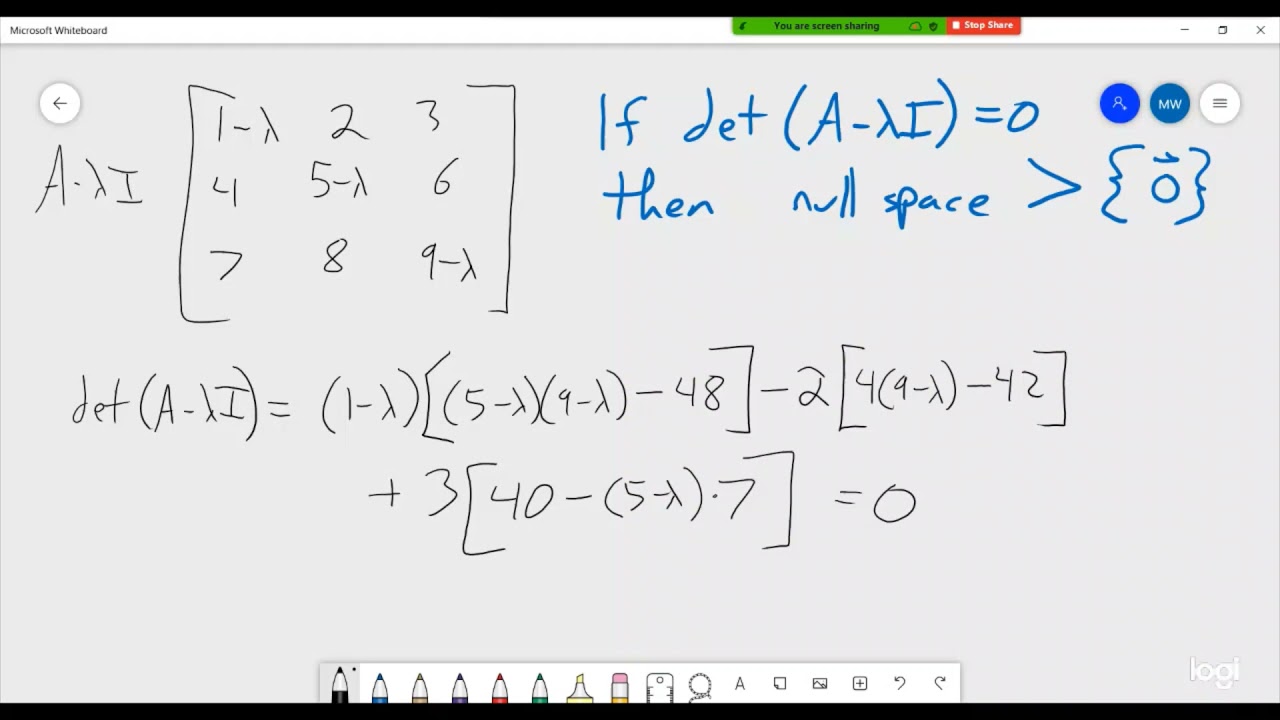 Microsoft Whiteboard
You are screen sharing
Stop Share
MW
A-λI
1-λ 2 3
4 5-λ 6
7 8 9-λ
If det(A-λI)=0
then null space > {0⃗}
det(A-λI)= (1-λ)[(5-λ)(9-λ)-48]-2[4(9-λ)-42]
+ 3[40-(5-λ)·7] =0
A
logi